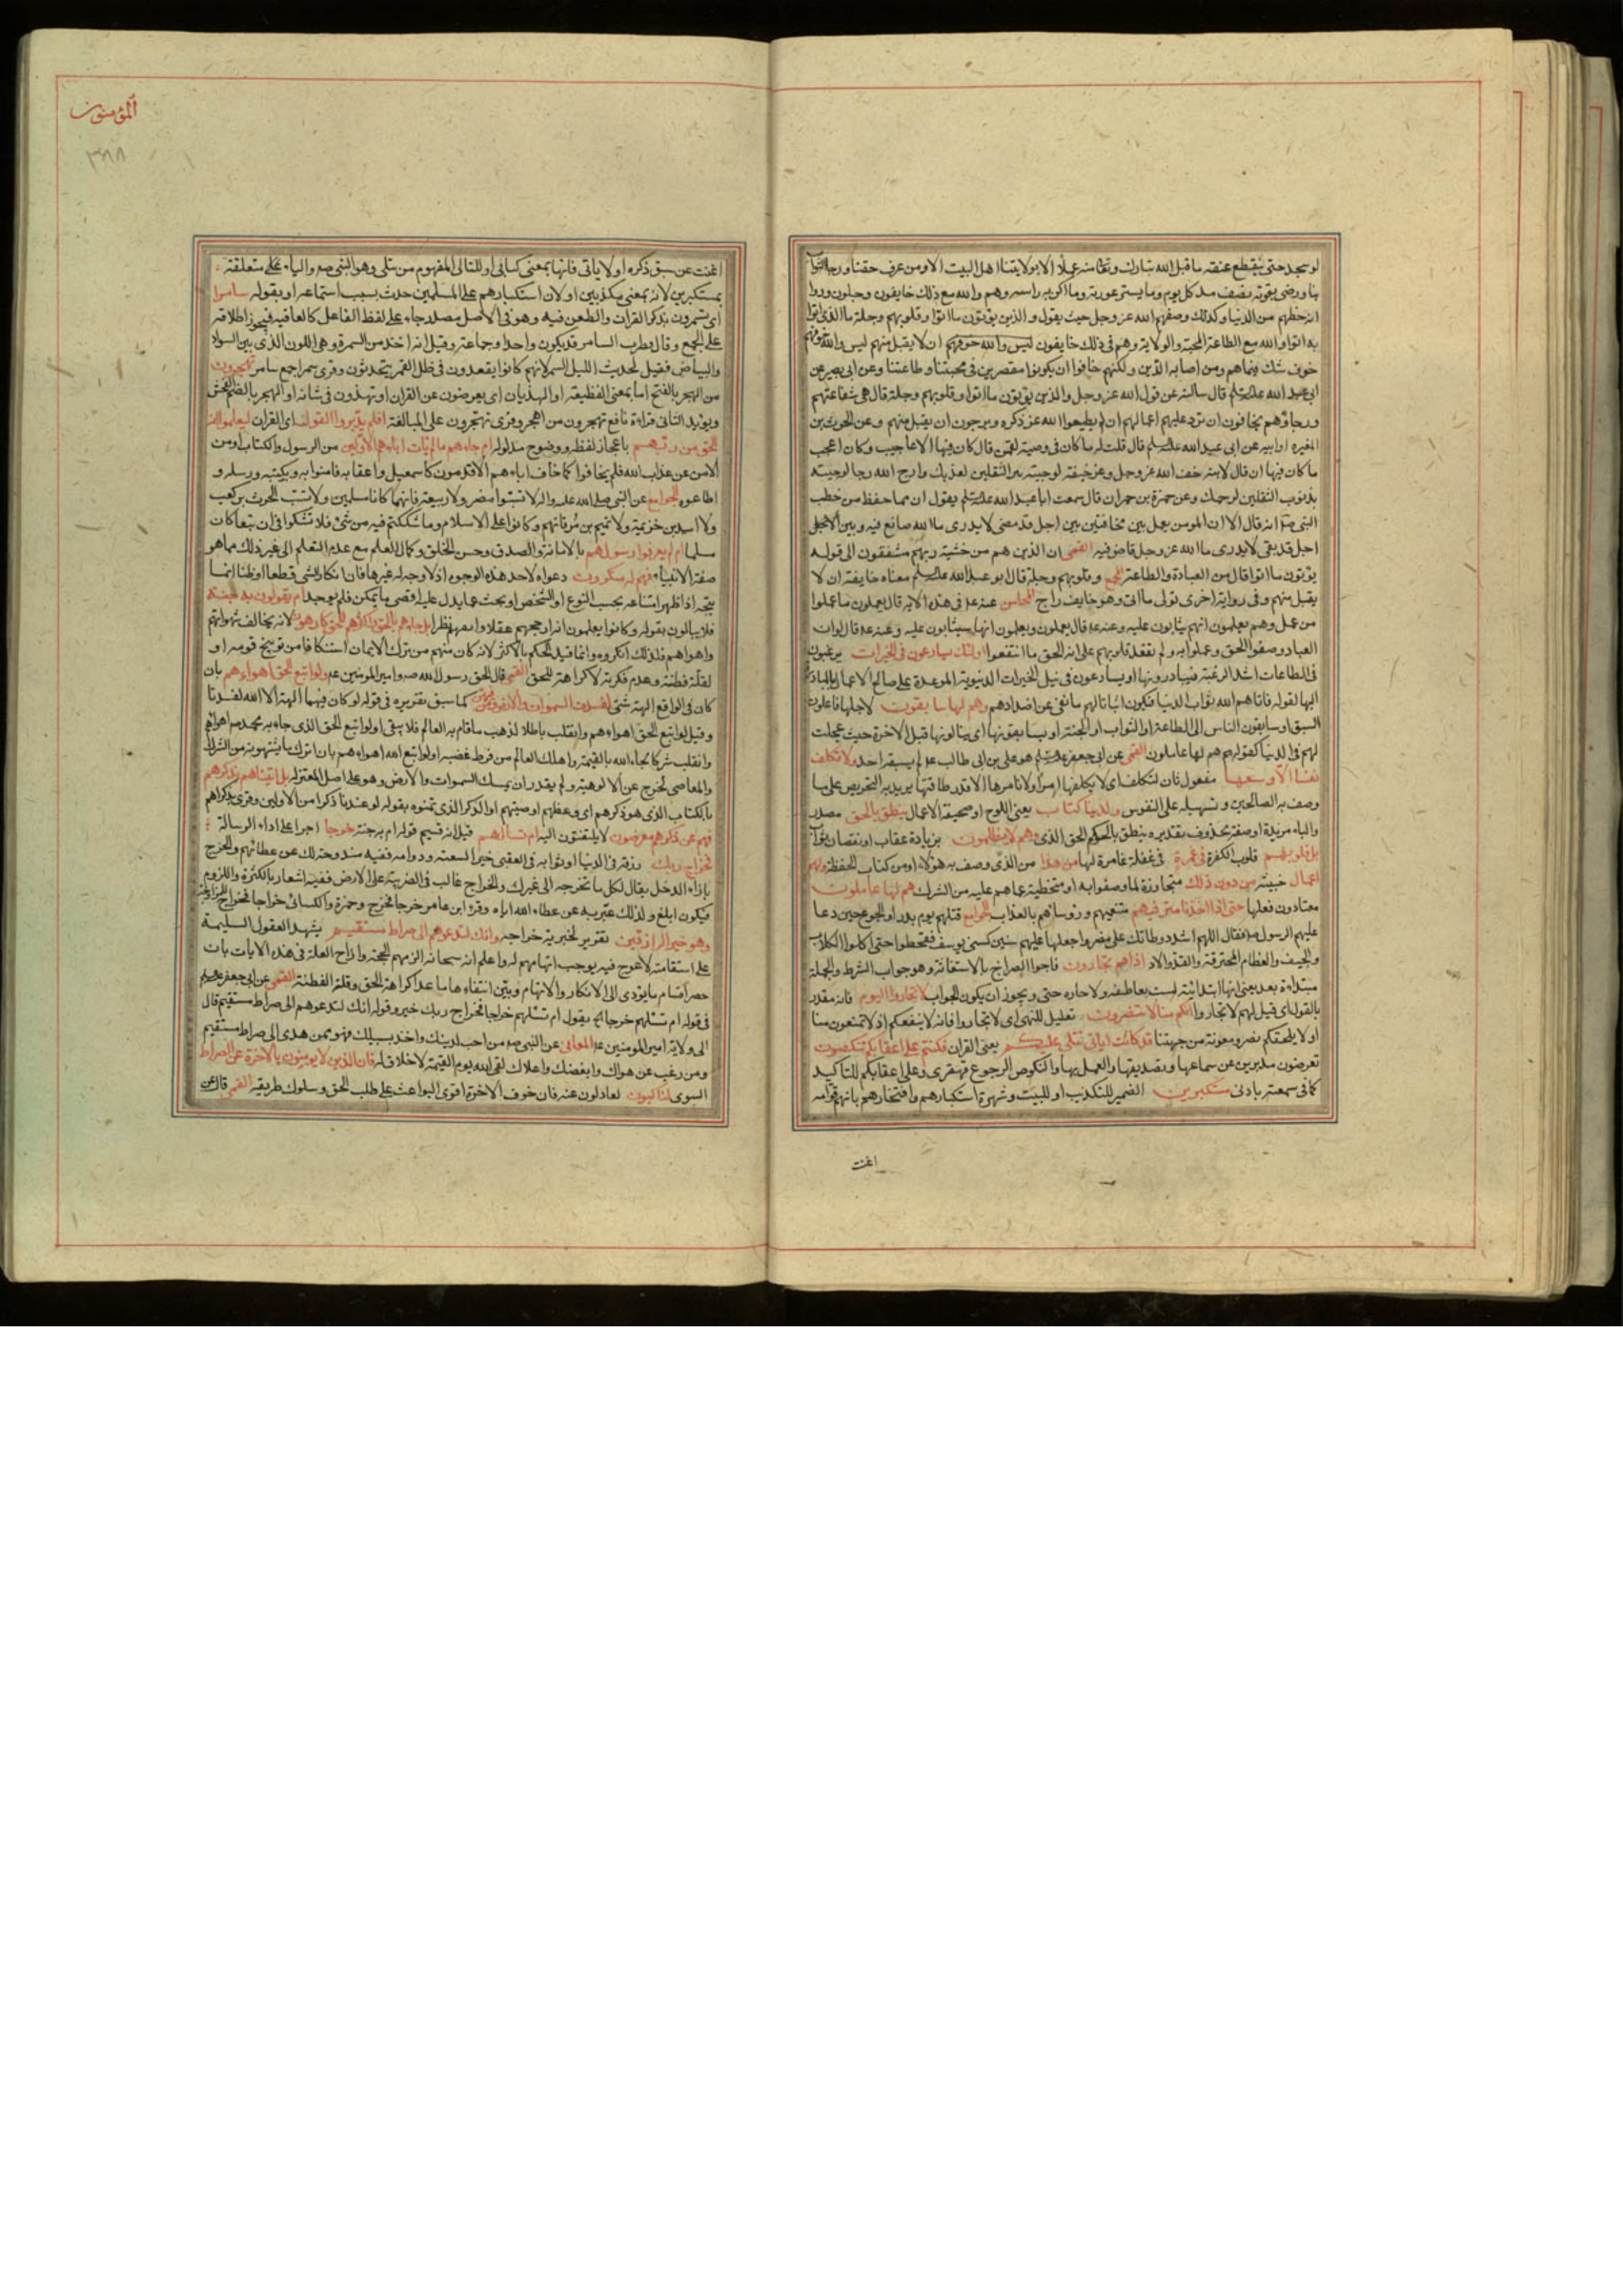 لو سجد حتى ينقطع عنقه ما قبل الله تبارك وتعالى منه عملا الا بولايتنا اهل البيت الا ومن عرف حقنا ورجا الثواب
بنا ورضى بقوته نصف مد كل يوم وما يستر عورته وما اكن به راسه وهم والله مع ذلك خايفون وجلون ودوا
انه حظهم من الدنيا وكذلك وصفهم الله عز وجل حيث يقول والذين يؤتون ما اتوا وقلوبهم وجلة ما الذى اتوا
به اتوا والله مع الطاعة المحبة والولاية وهم فى ذلك خايفون ان لا يقبل منهم ليس والله خوفهم
خوف شك فيما هم ومن اصابه الدين ولكنهم خافوا ان يكونوا مقصرين فى محبتنا وطاعتنا وعن ابى بصير عن
ابى عبد الله قال سالته عن قول الله عز وجل والذين يؤتون ما اتوا وقلوبهم وجلة قال هى شفاعتهم
ورجاؤهم يخافون ان ترد عليهم اعمالهم ان لم يطيعوا الله عز ذكره ويرجون ان يقبل منهم وعن الحرث بن
المغيره او ابيه عن ابى عبد الله قال قلت له ما كان فى وصية لقمن قال كان فيها الاعاجيب وكان اعجب
ما كان فيها ان قال لابنه خف الله عز وجل خيفة لو جئته ببر الثقلين لعذبك وارج الله رجا لو جئته
بذنوب الثقلين لرحمك وعن حمزة بن حمران قال سمعت ابا عبد الله يقول ان مما حفظ من خطب
النبى انه قال الا ان المومن يعمل بين مخافتين بين اجل قد مضى لا يدرى ما الله صانع فيه وبين
اجل قد بقى لا يدرى ما الله عز وجل قاض فيه القمى ان الذين هم من خشية ربهم مشفقون الى قوله
يؤتون ما اتوا قال من العبادة والطاعة وقلوبهم وجلة قال ابو عبد الله معناه خايفة ان لا
يقبل منهم وفى رواية اخرى ما اتى وهو خايف راج المحاسن عنه فى هذه الاية قال يعملون ما عملوا
من عمل وهم يعلمون انهم يثابون عليه وعنه قال يعملون ويعلمون انهم سيثابون عليه وعنه قال لو ان
العباد وصفوا الحق وعملوا به ولم يعقد قلوبهم على انه الحق ما انتفعوا اولئك يسارعون فى الخيرات يرغبون
فى الطاعات اشد الرغبة فيبادرونها او يسارعون فى نيل الخيرات الدنيوية الموعدة على صالح الاعمال بالمبادرة
اليها لقوله فاتاهم الله ثواب الدنيا فيكون اثباتا لهم ما نفى عن اضدادهم وهم لها سابقون لاجلها فاعلون
السبق او سابقون الناس الى الطاعة او الثواب او الجنة او يسابقونها اى ينالونها قبل الاخرة حيث عجلت
لهم فى الدنيا كقولهم هم لها عاملون القمى عن ابى جعفر هو على بن ابى طالب لم يسبقه احد ولا نكلف
نفسا الا وسعها مفعول ثان لنكلف اى لا يكلفها امرا ولا نامرها الا قدر طاقتها يريد به التحريض على ما
وصف به الصالحين وتسهيله على النفوس ولدينا كتاب يعنى اللوح او صحيفة الاعمال ينطق بالحق مصدر
والباء مزيدة او صفة محذوف تقديره ينطق بالحكم الحق الذى وهم لا يظلمون بزيادة عقاب او نقصان ثواب
بل قلوبهم قلوب الكفرة فى غمرة فى غفلة غامرة لها من هذا من الذى وصف به هؤلاء او من كتاب الحفظة ولهم
اعمال خبيثة من دون ذلك متجاوزة لما وصفوا به او متخطية عما هم عليه من الشرك هم لها عاملون
معتادون فعلها حتى اذا اخذنا مترفيهم متنعميهم ورؤساؤهم بالعذاب الجوامع قتلهم يوم بدر او الجوع حين دعا
عليهم الرسول فقال اللهم اشدد وطاتك على مضر واجعلها عليهم سنين كسنى يوسف فقحطوا حتى اكلوا الكلاب
والجيف والعظام المحترقة والقد والاولاد اذا هم يجأرون فاجوا الصراخ بالاستغاثة وهو جواب الشرط والجملة
مبتداءة بعد يعنى انها ابتدائية ليست بعاطفة ولا جاره حتى ويجوز ان يكون الجواب لا تجأروا اليوم فانه مقدر
بالقول اى قيل لهم لا تجأروا انكم منا لا تنصرون تعليل للنهى اى لا تجأروا فانه لا ينفعكم اذ لا تمنعون منا
او لا يلحقكم نصر ومعونة من جهتنا قد كانت اياتى تتلى عليكم يعنى القران فكنتم على اعقابكم تنكصون
تعرضون مدبرين عن سماعها وتصديقها والعمل بها والنكوص الرجوع قهقرى وعلى اعقابكم للتاكيد
كما فى سمعته باذنى مستكبرين الضمير للتكذيب او للبيت وشهرة استكبارهم وافتخارهم بانهم قوامه
اغنت
المؤمنون
٣٨٨
اغنت عن سبق ذكره او لاياتى فانها بمعنى كتابى او للتالى المفهوم من تتلى وهو النبى والباء متعلقة
بمستكبرين لانه بمعنى مكذبين او لان استكبارهم على المسلمين حدث بسبب استماعه او بقوله سامرا
اى تسمرون بذكر القران والطعن فيه وهو فى الاصل مصدر جاء على لفظ الفاعل كالعاقبه فيجوز اطلاقه
على الجمع وقال قطرب السامر قد يكون واحدا وجماعة وقيل انه اخذ من السمرة وهى اللون الذى بين السواد
والبياض فقيل لحديث الليل السمر لانهم كانوا يقعدون فى ظل القمر يتحدثون وقرى سمرا جمع سامر تهجرون
من الهجر بالفتح اما بمعنى القطيعة او الهذيان اى يعرضون عن القران او تهذون فى شانه او الهجر بالضم الفحش
ويؤيد الثانى قراءة نافع تهجرون من اهجر وقرى تهجرون على المبالغة افلم يدبروا القول اى القران ليعلموا انه
الحق من ربهم باعجاز لفظه ووضوح مدلوله ام جاءهم ما لم يات اباءهم الاولين من الرسول والكتاب او من
الامن من عذاب الله فلم يخافوا كما خاف اباءهم الاقدمون كاسمعيل واعقابه فامنوا به وبكتبه ورسله و
اطاعوه الجوامع عن النبى صلى الله عليه واله لا تسبوا مضر ولا ربيعة فانهما كانا مسلمين ولا تسبوا الحرث بن كعب
ولا اسد بن خزيمة ولا تميم بن مر فانهم كانوا على الاسلام وما شككتم فيه من شئ فلا تشكوا فى ان تبعا كان
مسلما ام لم يعرفوا رسولهم بالامانة والصدق وحسن الخلق وكمال العلم مع عدم التعلم الى غير ذلك مما هو
صفة الانبياء فهم له منكرون دعواه لاحد هذه الوجوه اذ لا وجه له غيرها فان انكار الشى قطعا او ظنا انما
يتجه اذا ظهر امتناعه بحسب النوع او الشخص او بحث عما يدل عليه اقصى ما يمكن فلم يوجد ام يقولون به جنة
فلا يبالون بقوله وكانوا يعلمون انه ارجحهم عقلا واتقنهم نظرا بل جاءهم بالحق واكثرهم للحق كارهون لانه يخالف شهواتهم
واهواءهم فلذلك انكروه وانما قيد الحكم بالاكثر لانه كان منهم من ترك الايمان استنكافا من توبيخ قومه او
لقلة فطنته وعدم فكرته لا كراهة للحق القمى قال الحق رسول الله وامير المؤمنين ولو اتبع الحق اهواءهم بان
كان فى الواقع الهة شتى لفسدت السموات والارض ومن فيهن كما سبق تقريره فى قوله لو كان فيهما الهة الا الله لفسدتا
وقيل لو اتبع الحق اهواءهم وانقلب باطلا لذهب ما قام به العالم فلا يبقى او لو اتبع الحق الذى جاء به محمد اهواءهم
وانقلب شركا لجاء الله بالقيمة واهلك العالم من فرط غضبه او لو اتبع الله اهواءهم بان انزل ما يشتهونه من الشرك
والمعاصى لخرج عن الالوهية ولم يقدر ان يمسك السموات والارض وهو على اصل المعتزله بل اتيناهم بذكرهم
بالكتاب الذى هو ذكرهم اى وعظهم او صيتهم او الذكر الذى تمنوه بقوله لو عندنا ذكرا من الاولين وقرى بذكراهم
فهم عن ذكرهم معرضون لا يلتفتون اليه ام تسألهم قيل انه قسيم قوله ام به جنة خرجا اجرا على اداء الرسالة
فخراج ربك رزقه فى الدنيا او ثوابه فى العقبى خير لسعته ودوامه ففيه مندوحة لك عن عطائهم والخرج
بازاء الدخل يقال لكل ما تخرجه الى غيرك والخراج غالب فى الضريبة على الارض ففيه اشعار بالكثرة واللزوم
فيكون ابلغ ولذلك عبر به عن عطاء الله اياه وقرأ ابن عامر خرجا فخرج وحمزة والكسائى خراجا فخراج
وهو خير الرازقين تقرير لخيرية خراجه وانك لتدعوهم الى صراط مستقيم يشهد العقول السليمة
على استقامته لا عوج فيه يوجب اتهامهم له واعلم انه سبحانه الزمهم الحجة وازاح العلة فى هذه الايات بان
حصر اقسام ما يؤدى الى الانكار والاتهام وبين انتفاءها ما عدا كراهة الحق وقلة الفطنة القمى عن ابى جعفر
فى قوله ام تسئلهم خرجا يقول ام تسئلهم خراجا فخراج ربك خير وقوله انك لتدعوهم الى صراط مستقيم قال
الى ولاية امير المؤمنين المعانى عن النبى من احب لدينك واخذ بسبيلك فهو ممن هدى الى صراط مستقيم
ومن رغب عن هواك وابغضك واخلاك لقى الله يوم القيمة لا خلاق له وان الذين لا يومنون بالاخرة عن الصراط
السوى لناكبون لعادلون عنه فان خوف الاخرة اقوى البواعث على طلب الحق وسلوك طريقه القمى قال عن